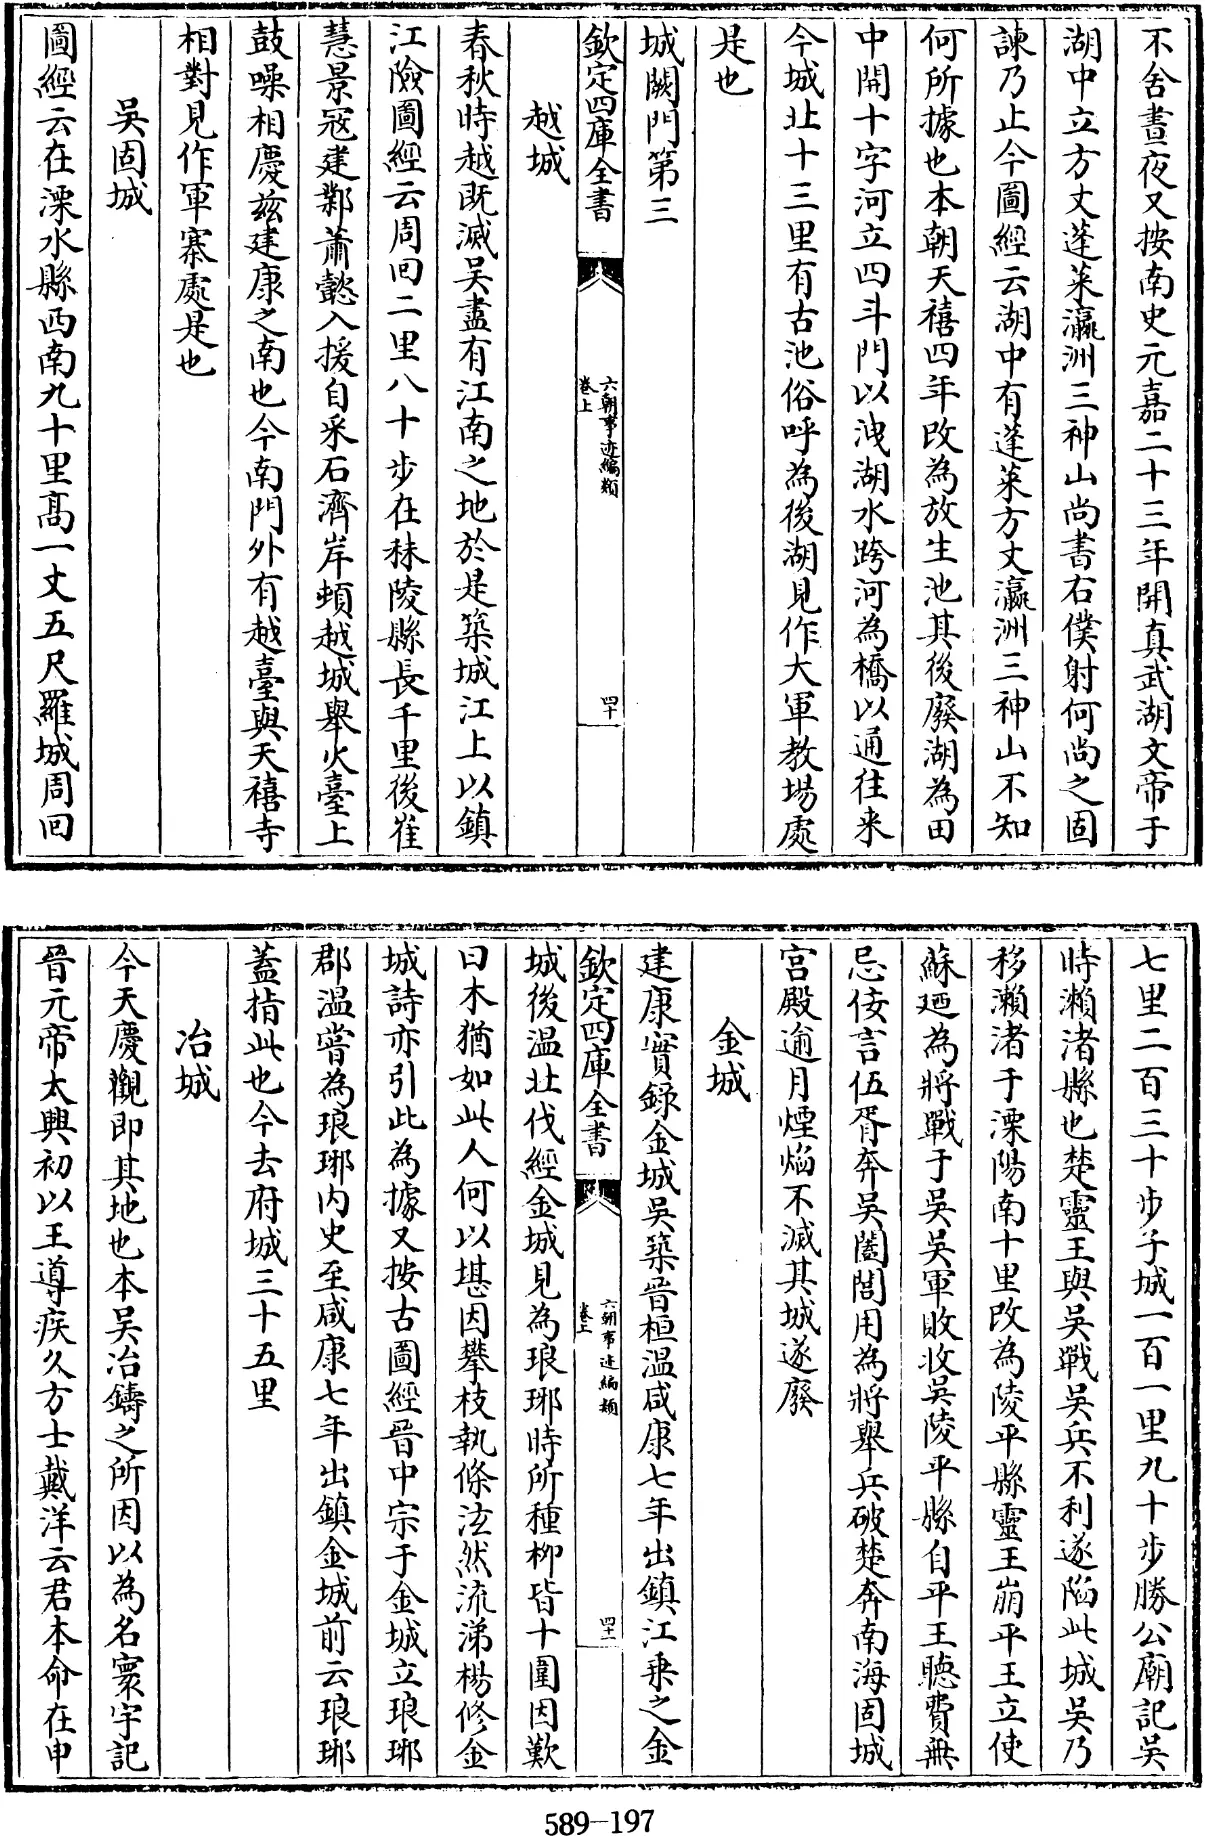 不舍晝夜又按南史元嘉二十三年開真武湖文帝于
湖中立方丈蓬萊瀛洲三神山尚書右僕射何尚之固
諫乃止今圖經云湖中有蓬萊方丈瀛洲三神山不知
何所據也本朝天禧四年改為放生池其後廢湖為田
中開十字河立四斗門以洩湖水跨河為橋以通往来
今城北十三里有古池俗呼為後湖見作大軍教場處
是也
城闕門第三
欽定四庫全書
六朝事迹編類
卷上
四十
越城
春秋時越既滅吳盡有江南之地於是築城江上以鎮
江險圖經云周回二里八十步在秣陵縣長千里後崔
慧景冦建鄴蕭懿入援自采石濟岸頓越城舉火臺上
鼓噪相慶兹建康之南也今南門外有越臺與天禧寺
相對見作軍寨處是也
吳固城
圖經云在溧水縣西南九十里髙一丈五尺羅城周回
七里二百三十步子城一百一里九十步勝公廟記吳
時瀨渚縣也楚靈王與吳戰吳兵不利遂陷此城吳乃
移瀨渚于溧陽南十里改為陵平縣靈王崩平王立使
蘇廼為將戰于吳吳軍敗收吳陵平縣自平王聽費無
忌佞言伍胥奔吳闔閭用為將舉兵破楚奔南海固城
宫殿逾月煙焔不滅其城遂廢
金城
建康實録金城吳築晉桓温咸康七年出鎮江乗之金
欽定四庫全書
六朝事迹編類
卷上
四十一
城後温北伐經金城見為琅琊時所種柳皆十圍因歎
曰木猶如此人何以堪因攀枝執條泫然流涕楊修金
城詩亦引此為據又按古圖經晉中宗于金城立琅琊
郡温嘗為琅琊内史至咸康七年出鎮金城前云琅琊
蓋指此也今去府城三十五里
冶城
今天慶觀即其地也本吳冶鑄之所因以為名寰宇記
晉元帝太興初以王導疾久方士戴洋云君本命在申
589-197